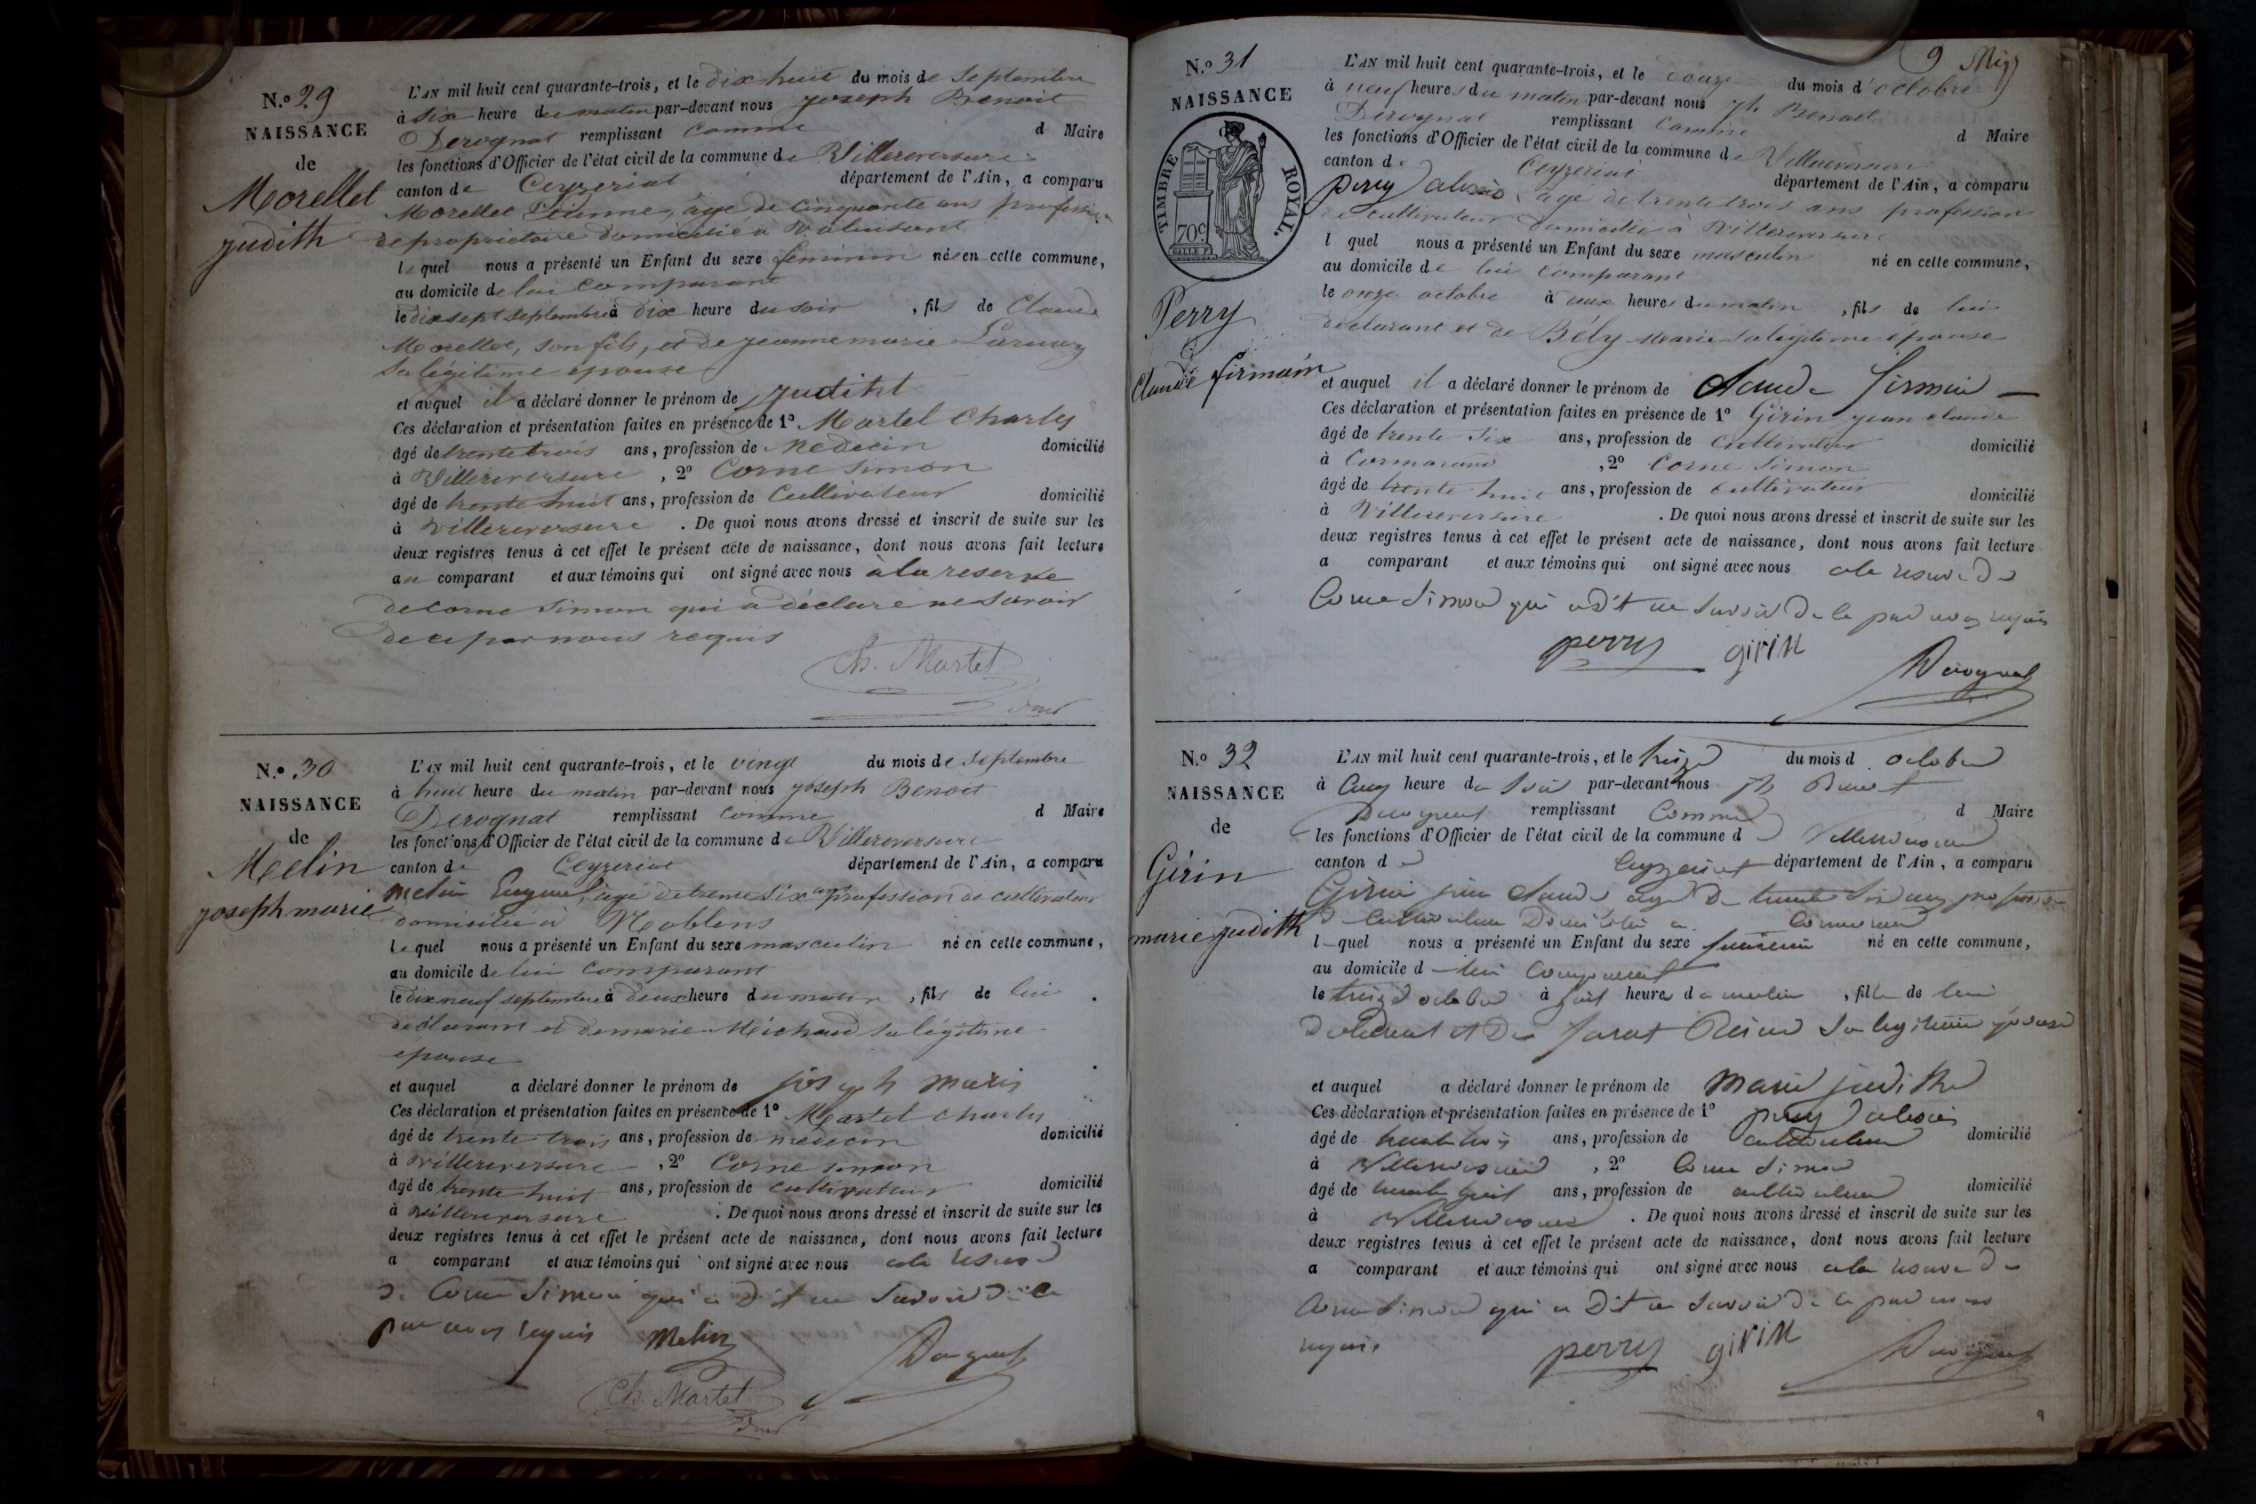 N.o 29
NAISSANCE
de
Morellet
judith
L'AN mil huit cent quarante-trois, et le dix huit du mois de Septembre
à six heure du matin par-devant nous joseph Benoit
Derognat remplissant comme d Maire
les fonctions d'Officier de l'état civil de la commune de Villereversure
canton de Ceyzeriat département de l'Ain, a comparu
Morellet Etienne, âgé de cinquante ans profession
de propriétaire domicilié à
le quel nous a présenté un Enfant du sexe feminin né en cette commune,
au domicile de lui comparant
le dix sept septembre à dix heure du soir , fils de Claude
Morellet, son fils, et de jeanne marie
sa légitime épouse
et auquel il a déclaré donner le prénom de judiht
Ces déclaration et présentation faites en présence de 1o Martel Charles
âgé de trente trois ans, profession de Medecin domicilié
à Villereversure , 2o Corne Simon
âgé de trente huit ans, profession de Cultivateur domicilié
à Villereversure . De quoi nous avons dressé et inscrit de suite sur les
deux registres tenus à cet effet le présent acte de naissance, dont nous avons fait lecture
au comparant et aux témoins qui ont signé avec nous à la reserve
de Corne Simon qui a déclaré ne savoir
de ce par nous requis
Ch. Martel
N.o 30
NAISSANCE
de
Melin
joseph marie
L'AN mil huit cent quarante-trois, et le vingt du mois de Septembre
à huit heure du matin par-devant nous joseph Benoit
Derognat remplissant comme d Maire
les fonctions d'Officier de l'état civil de la commune de Villereversure
canton de Ceyzeriat département de l'Ain, a comparu
melin Eugene, âgé de trente six ans profession de cultivateur
domicilié à Noblens
le quel nous a présenté un Enfant du sexe masculin né en cette commune,
au domicile de lui comparant
le dix neuf septembre à deux heure du matin , fils de lui
déclarant et de marie Michaud sa légitime
épouse
et auquel a déclaré donner le prénom de joseph marie
Ces déclaration et présentation faites en présence de 1o Martel Charles
âgé de trente trois ans, profession de medecin domicilié
à Villereversure , 2o Corne Simon
âgé de trente huit ans, profession de cultivateur domicilié
à Villereversure . De quoi nous avons dressé et inscrit de suite sur les
deux registres tenus à cet effet le présent acte de naissance, dont nous avons fait lecture
a comparant et aux témoins qui ont signé avec nous a la reserve
de Corne Simon qui a dit ne savoir de ce
par nous requis Melin
Derognat
Ch. Martel
9
N.o 31
NAISSANCE
TIMBRE ROYAL.
70c
Perry
Claude firmain
L'AN mil huit cent quarante-trois, et le onze du mois d'octobre
à neuf heures du matin par-devant nous jh Benoit
Derognat remplissant comme d Maire
les fonctions d'Officier de l'état civil de la commune de Villereversure
canton de Ceyzeriat département de l'Ain, a comparu
perry alexis, âgé de trente trois ans profession
de cultivateur domicilié à Villereversure
l quel nous a présenté un Enfant du sexe masculin né en cette commune,
au domicile de lui comparant
le onze octobre à deux heures du matin , fils de lui
déclarant et de Bély Marie sa legitime épouse
et auquel il a déclaré donner le prénom de Claude firmain
Ces déclaration et présentation faites en présence de 1o Girin jean claude
âgé de trente six ans, profession de cultivateur domicilié
à Cormorand , 2o Corne Simon
âgé de trente huit ans, profession de cultivateur domicilié
à Villereversure . De quoi nous avons dressé et inscrit de suite sur les
deux registres tenus à cet effet le présent acte de naissance, dont nous avons fait lecture
a comparant et aux témoins qui ont signé avec nous a la reserve de
Corne Simon qui a dit ne savoir de ce par nous requis
perry girin
Derognat
N.o 32
NAISSANCE
de
Girin
marie judith
L'AN mil huit cent quarante-trois, et le treize du mois d octobre
à cinq heure du soir par-devant nous jh Benoit
Derognat remplissant comme d Maire
les fonctions d'Officier de l'état civil de la commune de Villereversure
canton de Ceyzeriat département de l'Ain, a comparu
Girin jean claude agé de trente six ans profession
de cultivateur domicilié à Cormorand
l quel nous a présenté un Enfant du sexe feminin né en cette commune,
au domicile de lui comparant
le treize octobre à huit heures du matin , fille de lui
déclarant et de Reine sa legitime épouse
et auquel a déclaré donner le prénom de marie judith
Ces déclaration et présentation faites en présence de 1o perry alexis
âgé de trente trois ans, profession de cultivateur domicilié
à Villereversure , 2o Corne Simon
âgé de trente huit ans, profession de cultivateur domicilié
à Villereversure . De quoi nous avons dressé et inscrit de suite sur les
deux registres tenus à cet effet le présent acte de naissance, dont nous avons fait lecture
a comparant et aux témoins qui ont signé avec nous a la reserve de
Corne Simon qui a dit ne savoir de ce par nous
requis perry girin Derognat
9